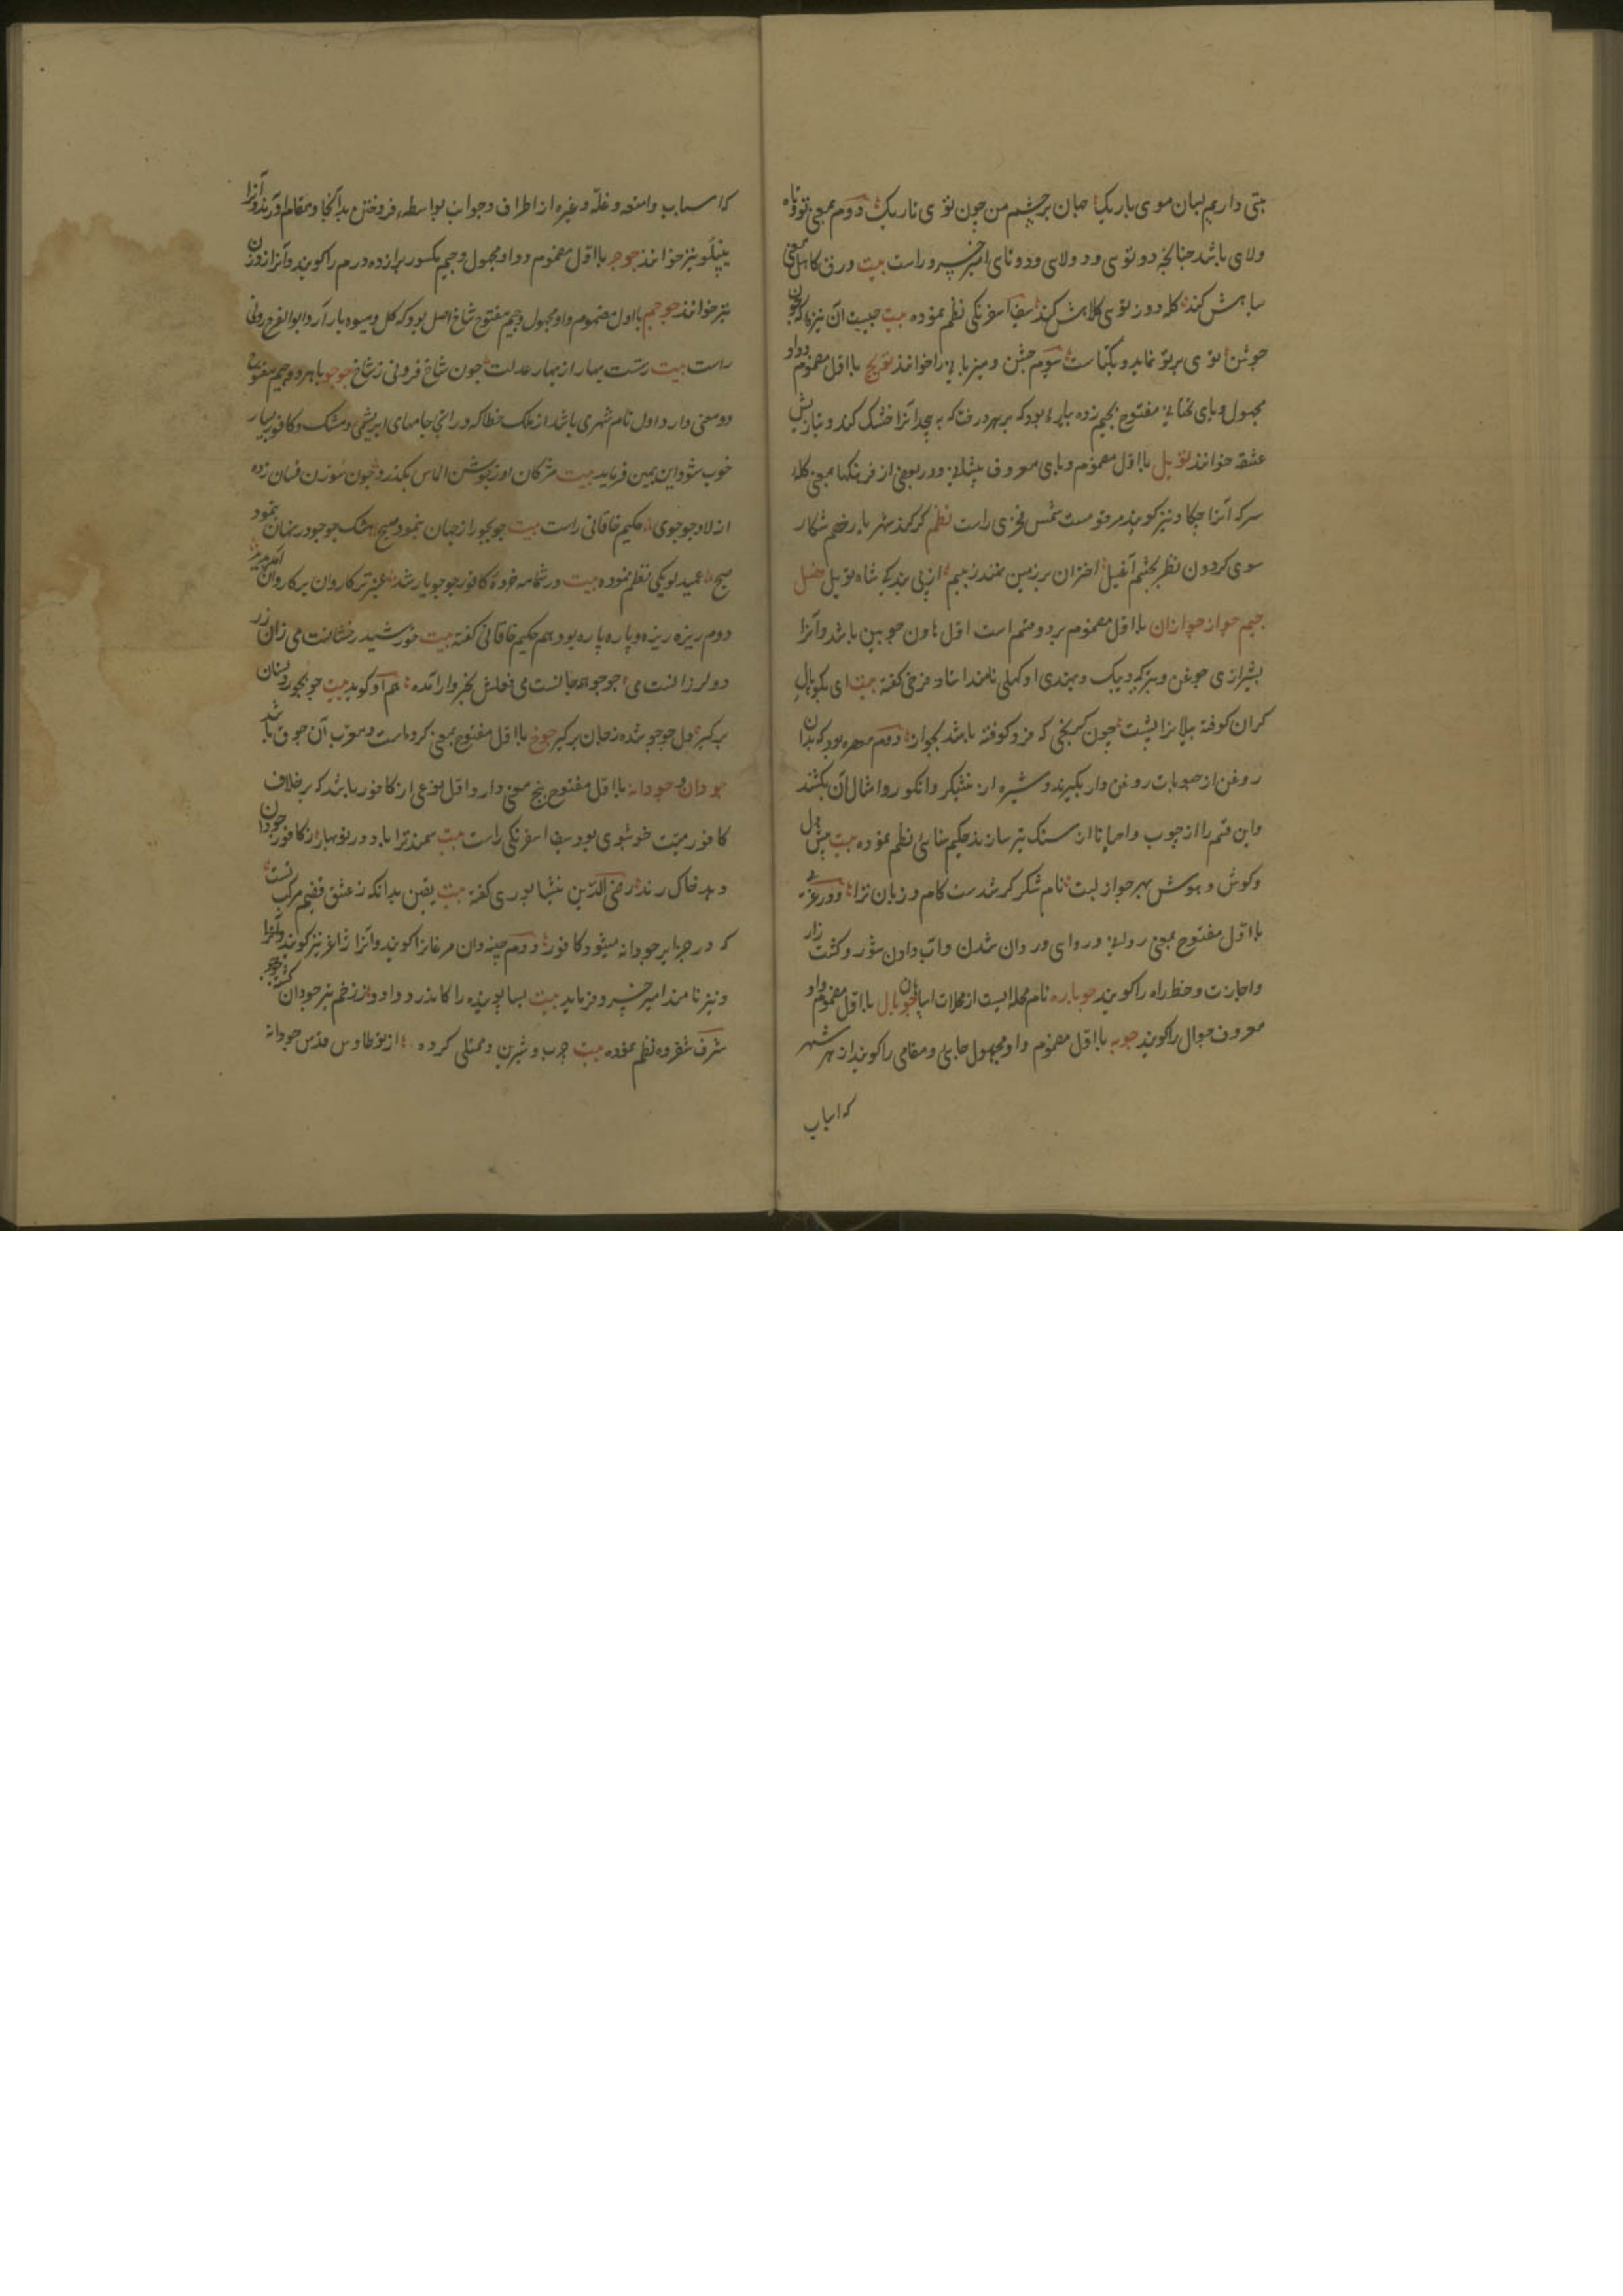 بتی داریم لبان موی باریک جان برچشم من چون توی تاریک دوم بمعنی تو و تاه
ولای باشد چنانچه دو توی و دولای و دوتای امیر خسرو راست بیت ورق کامل
کند کله دوز توی کلاهش کند سیف اسفرنکی نظم نموده بیت چیست آن
جوشن توی بر تو نماید و یکتاست سوم جشن و میزبانی را خوانند تویج با اول مضموم و واو
مجهول و یای تحتانی مفتوح بجیم زده بیاره بود که بر هر درخت که پیچد آنرا خشک کند و بتازیش
عشقه خوانند تویل با اول مضموم و یای معروف پیشانی و در بعضی از فرهنکها بمعنی کله
سر که آنرا چکاد نیز کویند مرقومست شمس فخری راست نظم کر کند شهریار رخم شکار
سوی کردون نظر بچشم آغیل اختران بر زمین نهند ز بیم از پی بندکی شاه تویل فصل
جیم جواز جوازان با اول مضموم بر دو قسم است اول هاون چوبین باشد و آنرا
بشیرازی جوغن و بترکی دیبک و بهندی اوکهلی نامند استاد فرخی کفته بیت ای بکوپال
کران کوفته پیلانرا پشت چون کرنجی که فرو کوفته باشد بجواز دوم معصره بود که بدان
روغن از حبوبات روغن دار بکیرند و شیره از نیشکر و انکور و امثال آن بکشند
و این قسم را از چوب و احیانا از سنک نیز سازند حکیم سنائی نظم نموده بیت پیش دل
و کوش و هوش بهر جواز لبت نام شکر کر شدست کام و زبان ترا و در عربی
با اول مفتوح بمعنی روانی و روای و روان شدن و آب دادن ستور و کشت زار
و اجازت و خط راه را کویند جوباره نام محله ایست از محلات اسپاهان جوبال با اول مضموم و واو
معروف جوال را کویند جوبه با اول مضموم و واو مجهول جای و مقامی را کویند از هر شهر
که اسباب
که اسباب و امتعه و غله و غیره از اطراف و جوانب بواسطه فروختن بدآنجا و بمقام آورند و آنرا
بنپلو نیز خوانند جوجر با اول مضموم و واو مجهول و جیم مکسور برا زده درم را کویند و آنرا
نیز خوانند جوجم با اول مضموم و واو مجهول و جیم مفتوح شاخ اصل بود که کل و میوه بار آرد ابوالفرج رونی
راست بیت رشت بهار از بهار عدلت چون شاخ فرونی ز شاخ جوجم جوجو با هر دو جیم مفتوح
دو معنی دارد اول نام شهری باشد از ملک خطا که در انجا جامهای ابریشمی و مشک و کافور بسیار
خوب شود ابن یمین فرماید بیت مژکان او ز جوشن الماس بکذرد چون سوزن فسان زده
از لاد جوجوی حکیم خاقانی راست بیت جوجو راز جهان بنمود صبح مشک جوجو در نهان بنمود
صبح عمید لویکی نظم نموده بیت در شمامه خورده کافور جوجو یار شد عنبر تر کاروان بر کاروان آمد پدید
دوم ریزه ریزه و پاره پاره بود هم حکیم خاقانی کفته بیت خورشید رخشانست می زان زر
دو لرزانست می جوجو همه جانست می فعلش بخروار آمده هم او کوید بیت جو بجو دلستان
بر کیر دل جوجو شده ز جان بر کیر جوخ با اول مفتوح بمعنی کروه است و معرب آن جوق باشد
جودان و جودانه با اول مفتوح پنج معنی دارد اول نوعی از کافور باشد که برخلاف
کافور میت خوشبوی بود سیف اسفرنکی راست بیت سمند ترا باد در نوبهار از کافور جودان
دهد خاک رند رضی الدین نیشابوری کفته بیت یقین بدانکه ز عشق فقیم مرکب تست
که در چرابر جودانه میشود کافور دوم چینه دان مرغانرا کویند و آنرا ژاغر نیز کویند و آنرا
و نیز نامند امیر خسرو فرماید بیت بسا پوینده را کاندر دوادو ز زخم نیز جودان کشته جوجو
شرف شفروه نظم نموده بیت چرب و شیرین و ممتلی کرده از تو طاوس قدس جودانه